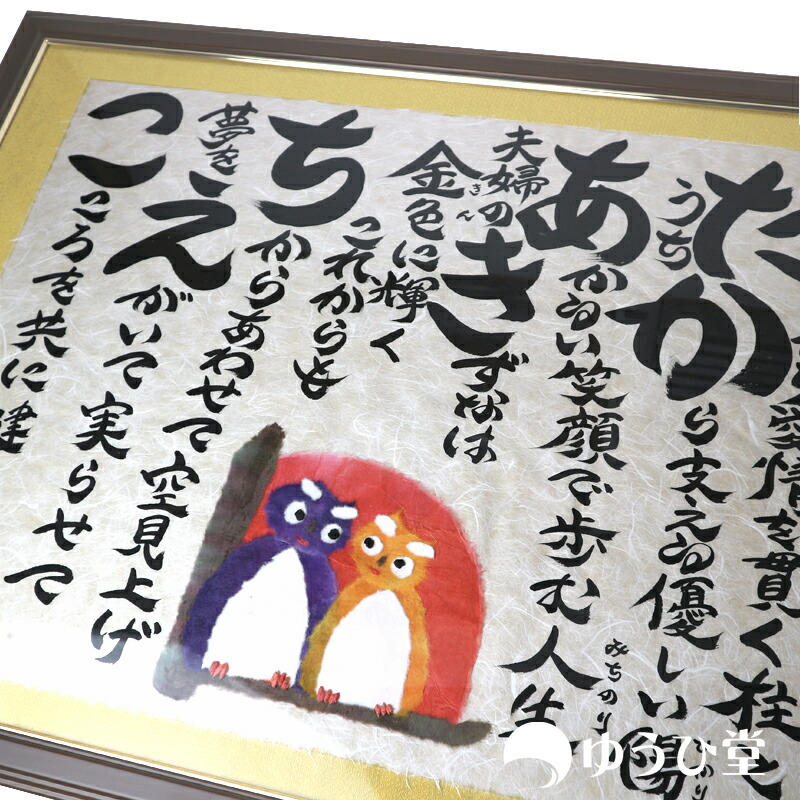 た
愛情を貫く柱と
うち
から支える優しい陽
あかるい笑顔で歩む人生
みちのり
夫婦の
きずなは
金色に輝く
きん
これからも
ちからあわせて空見上げ
夢を
えがいて実らせて
こころを共に建
ゆうひ堂